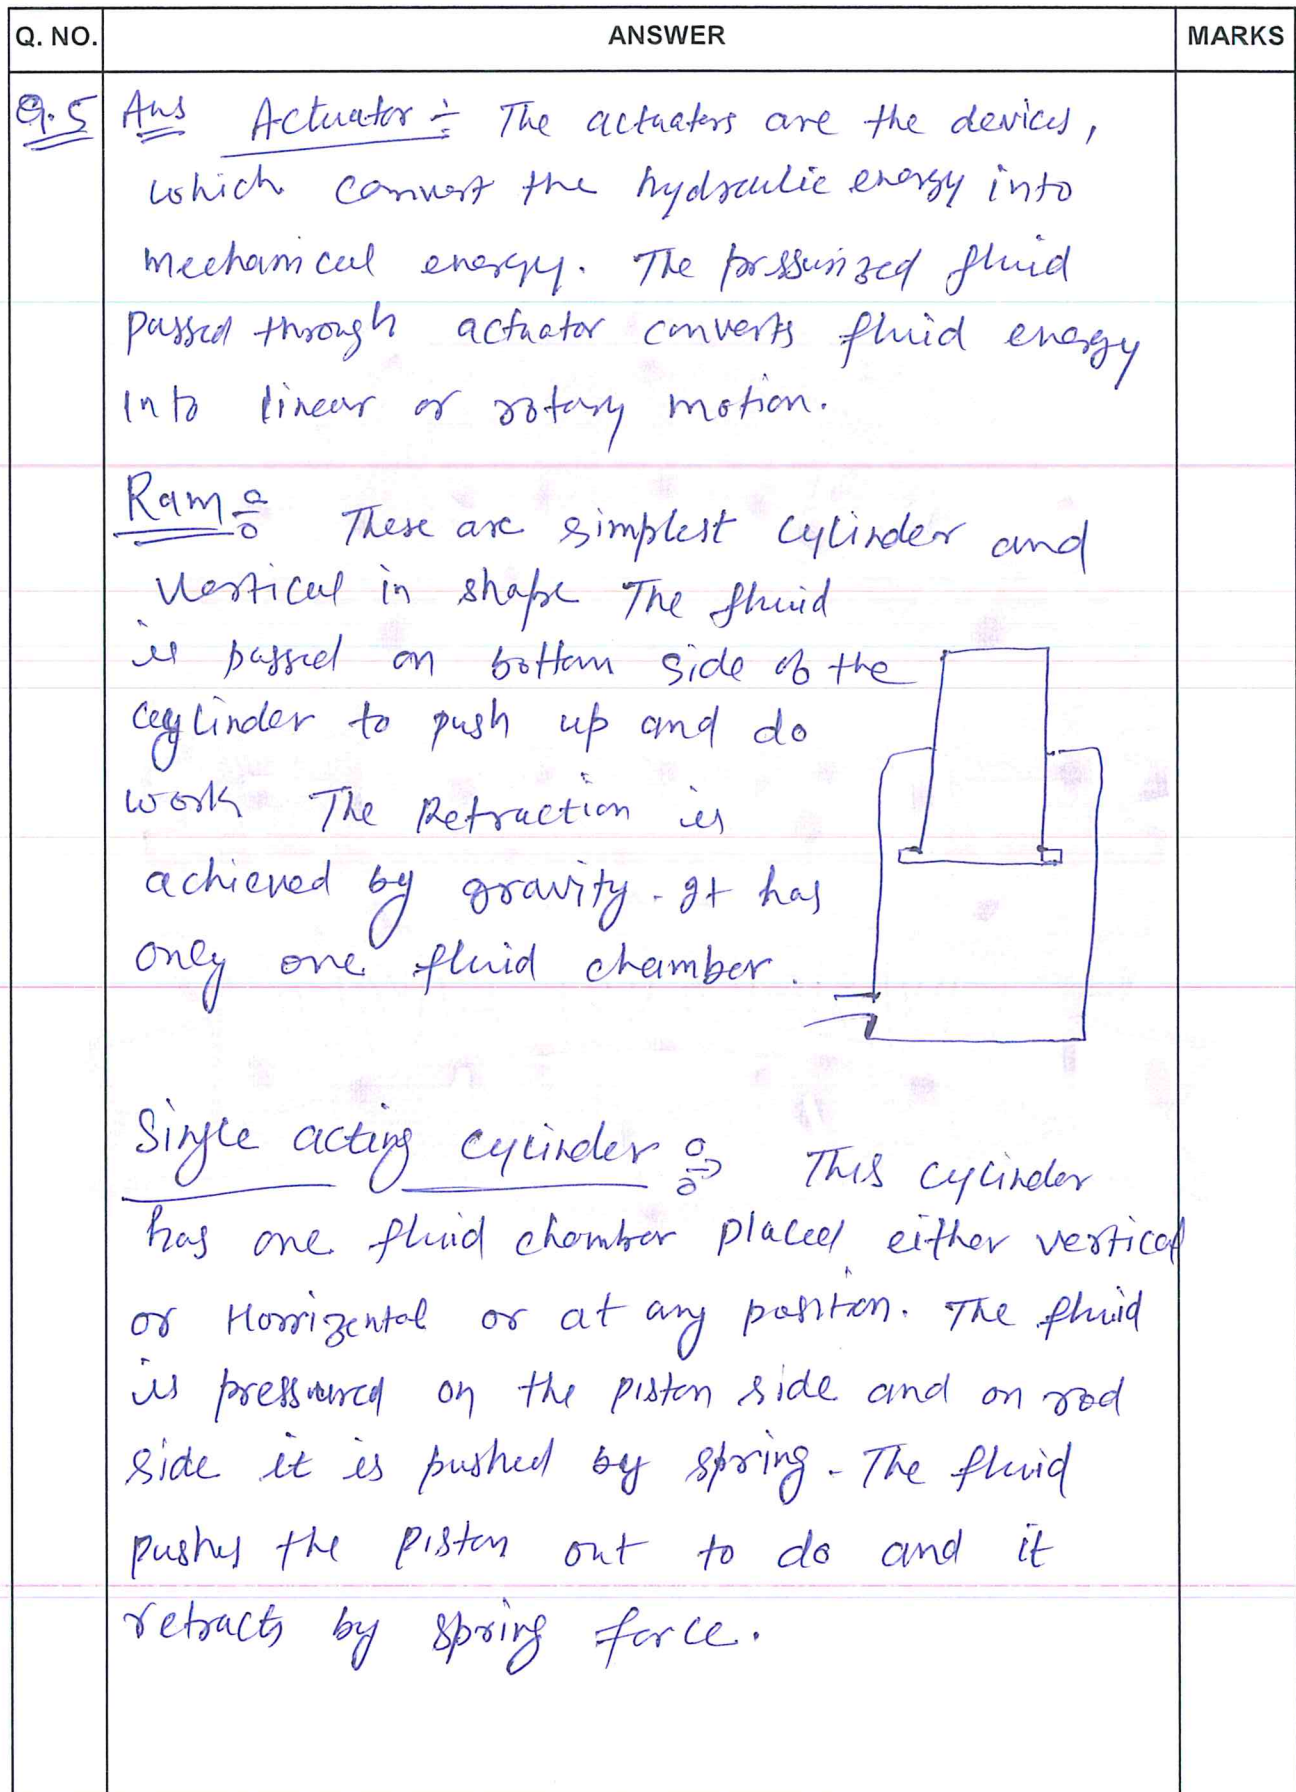 Q. NO. ANSWER MARKS
Q.5 Ans Actuator :- The actuators are the devices,
which convert the hydraulic energy into
mechanical energy. The pressurized fluid
passed through actuator converts fluid energy
into linear or rotary motion.
Ram :- These are simplest cylinder and
vertical in shape The fluid
is passed on bottom side of the
cylinder to push up and do
work The Retraction is
achieved by gravity. It has
only one fluid chamber.
Single acting cylinder :- This cylinder
has one fluid chamber placed either vertical
or Horrizental or at any position. The fluid
is pressured on the piston side and on rod
side it is pushed by spring. The fluid
pushes the piston out to do and it
retracts by spring force.